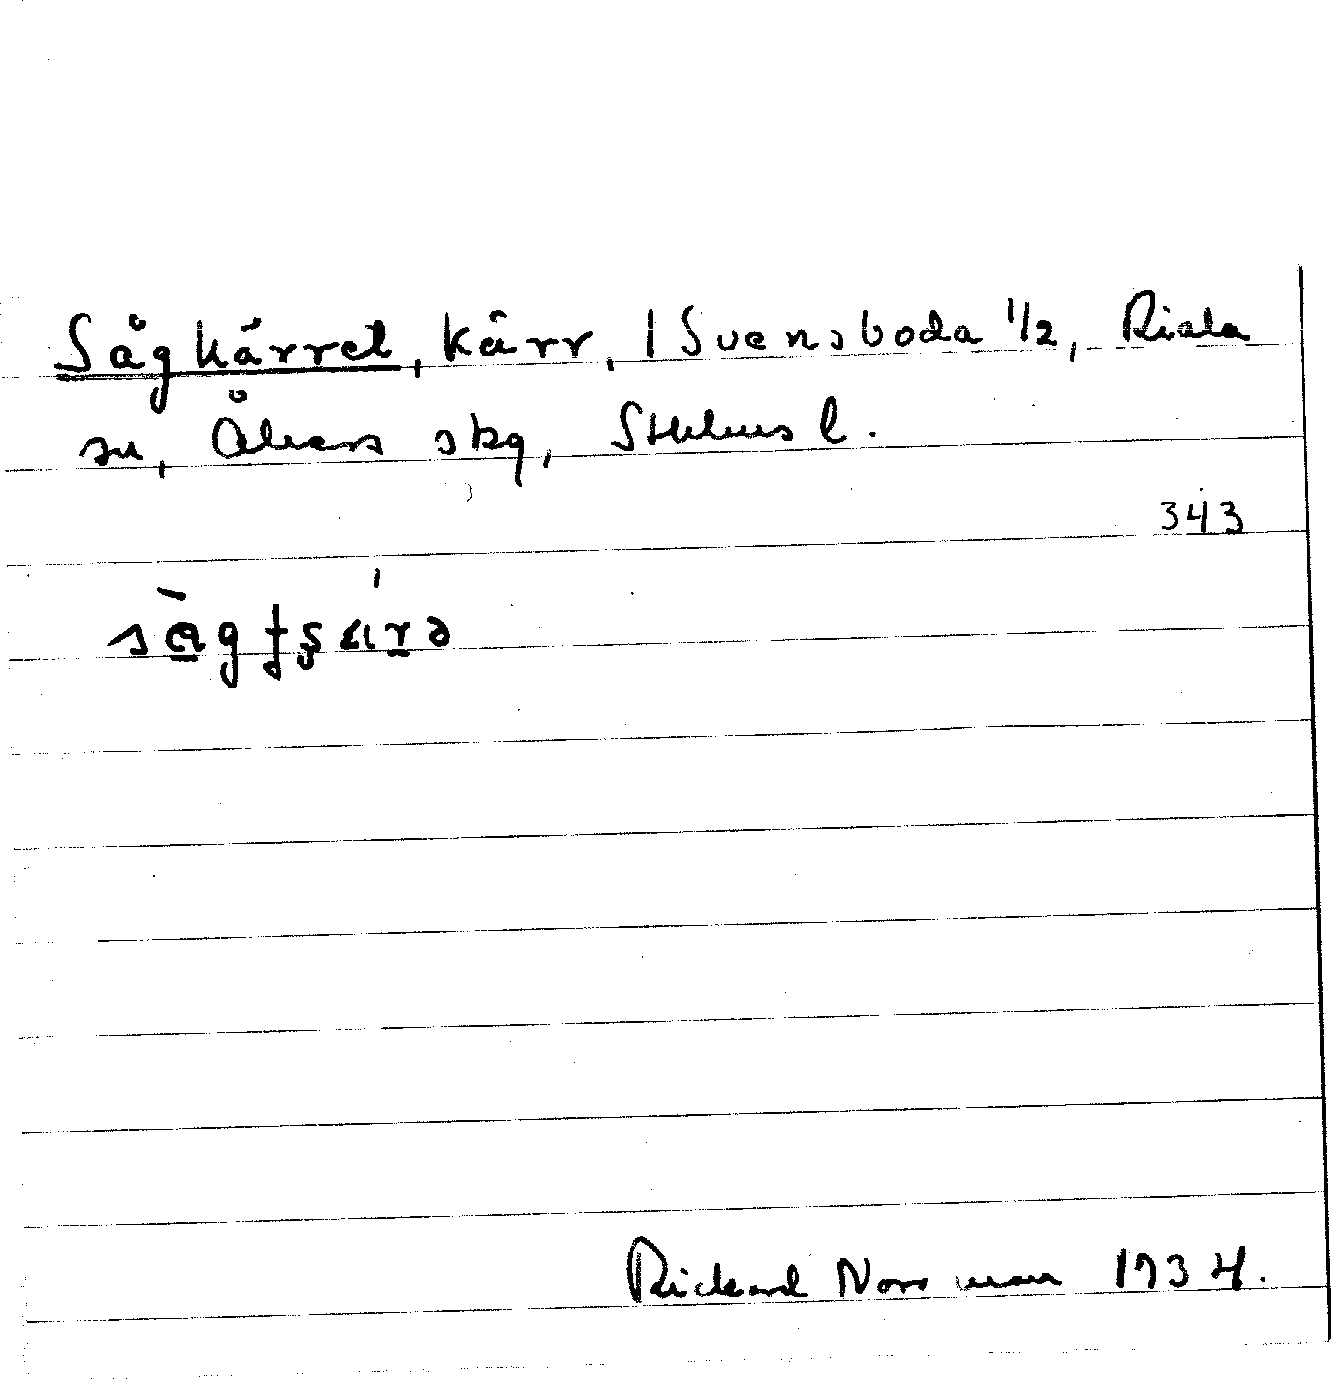 Sågkärret, kärr, 1 Svensboda 1/2, Riala
sn, Åkers skg, Sthlms l.
343
Rickard Norrman 1934.